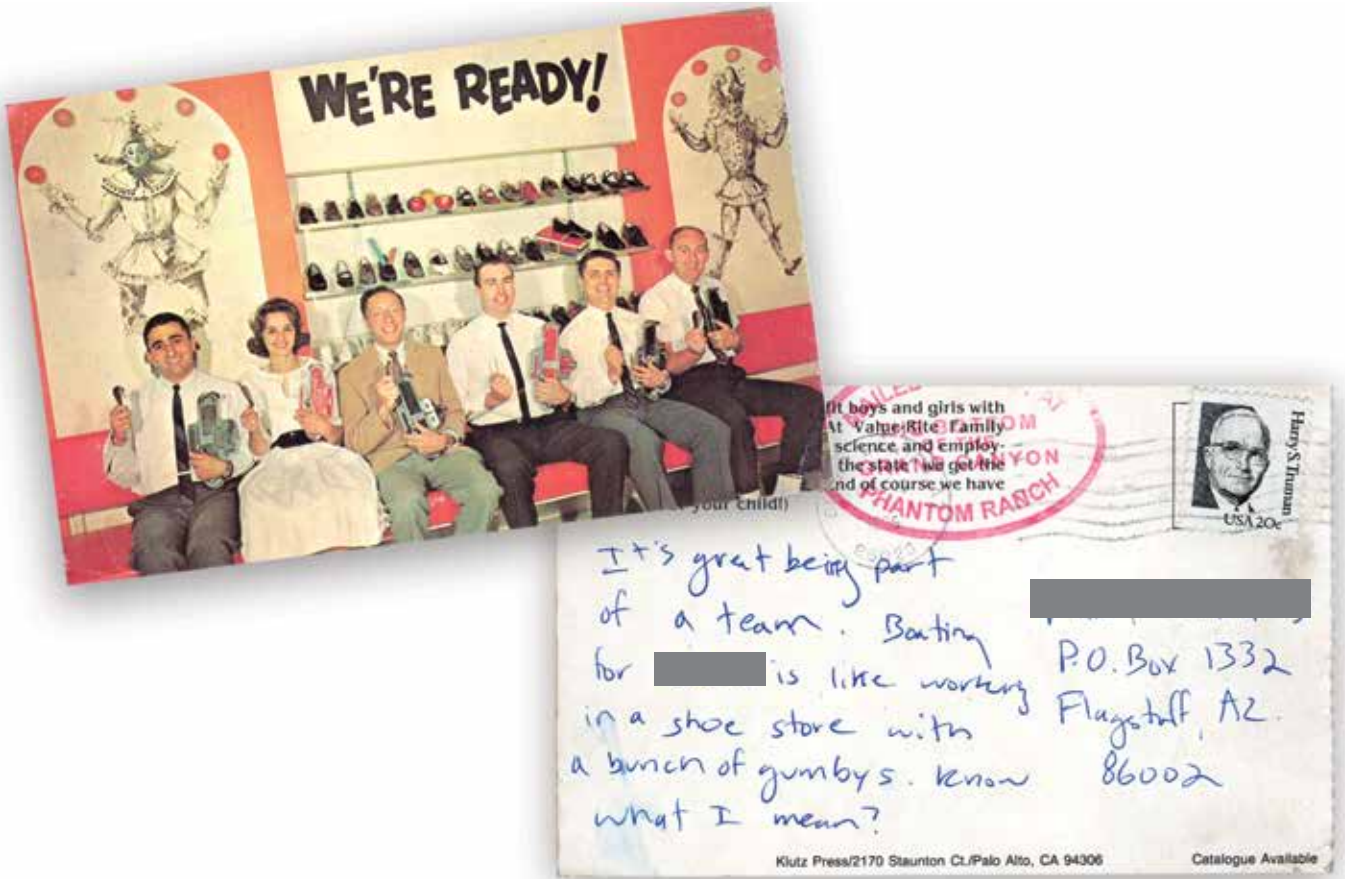 WE'RE READY!
fit boys and girls with
At Value-Rite Family
science and employ-
the state we get the
of course we have
your child!)
CANYON
PHANTOM RANCH
Harry S. Truman
USA 20c
It's great being part
of a team. Boating
for
is like working
in a shoe store with
a bunch of gumbys. know
what I mean?
P.O. Box 1332
Flagstaff, AZ.
86002
Klutz Press/2170 Staunton Ct./Palo Alto, CA 94306
Catalogue Available